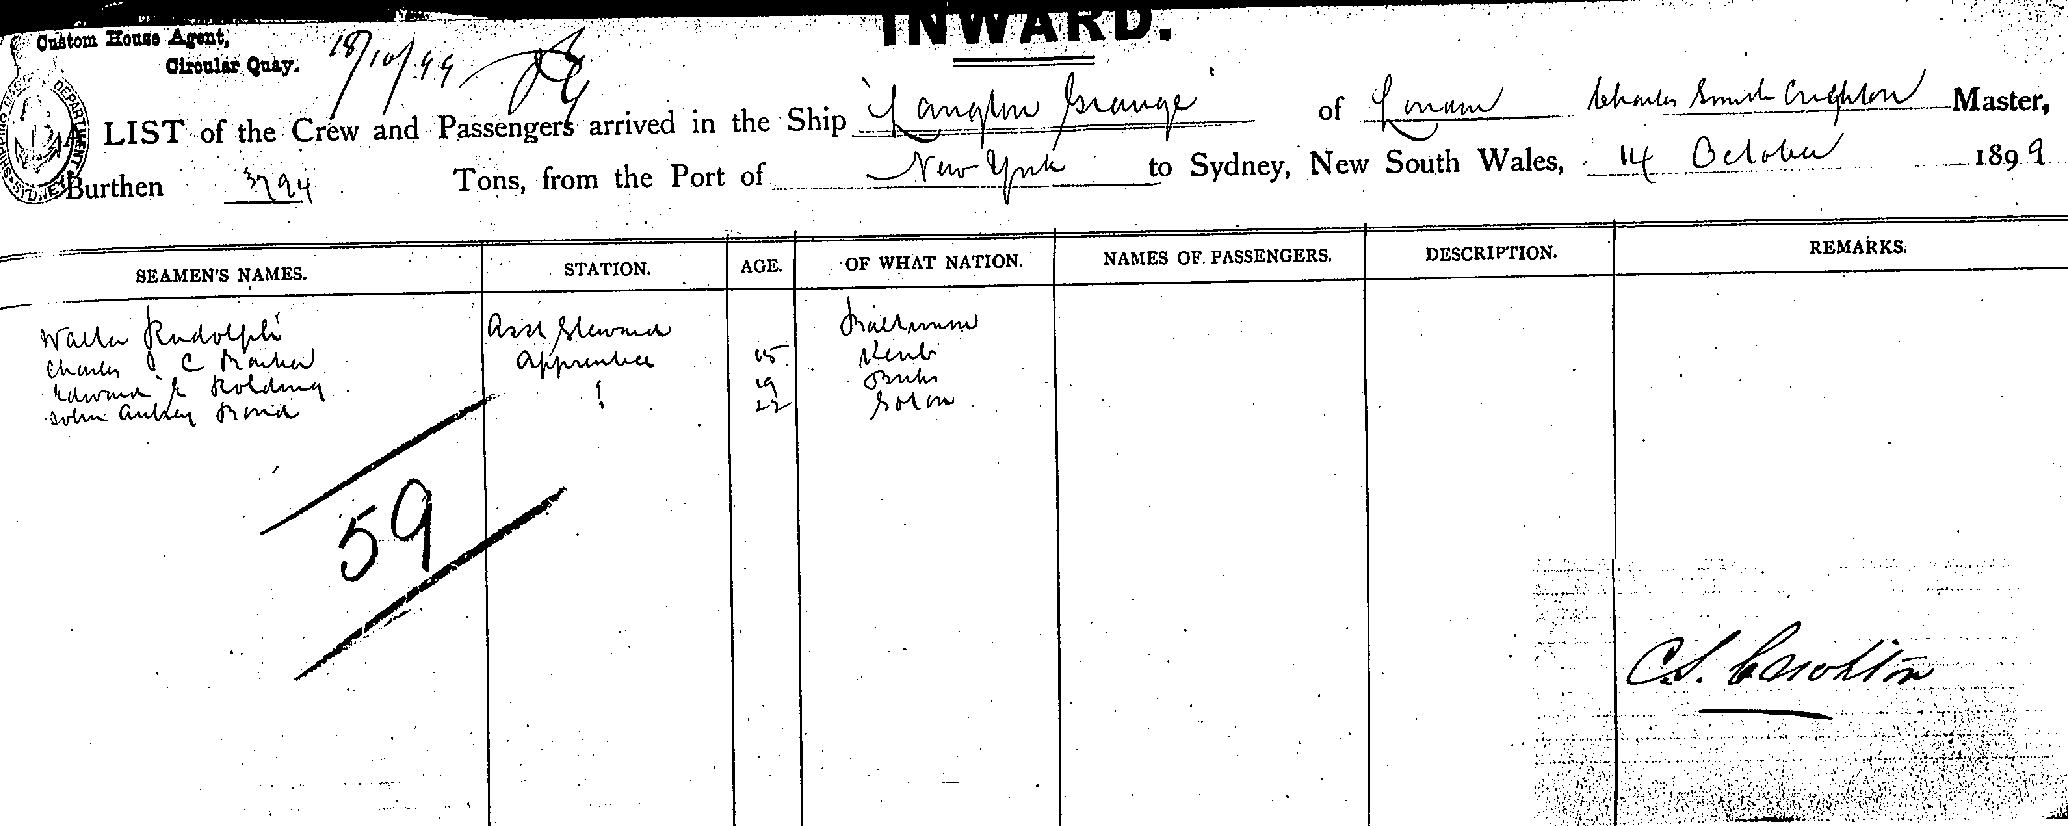 INWARD.
Custom House Agent,
Circular Quay.
18/10/99
LIST of the Crew and Passengers arrived in the Ship "Langton Grange" of London Charles Smith Crighton Master,
Burthen 3794 Tons, from the Port of New York to Sydney, New South Wales, 14 October 1899
SEAMEN'S NAMES. STATION. AGE. OF WHAT NATION. NAMES OF PASSENGERS. DESCRIPTION. REMARKS.
Walter Rudolph Asst Steward
Charles C Apprentice 15 Kent
Edward E 19
John Aubrey 22
59
C.S. Crichton